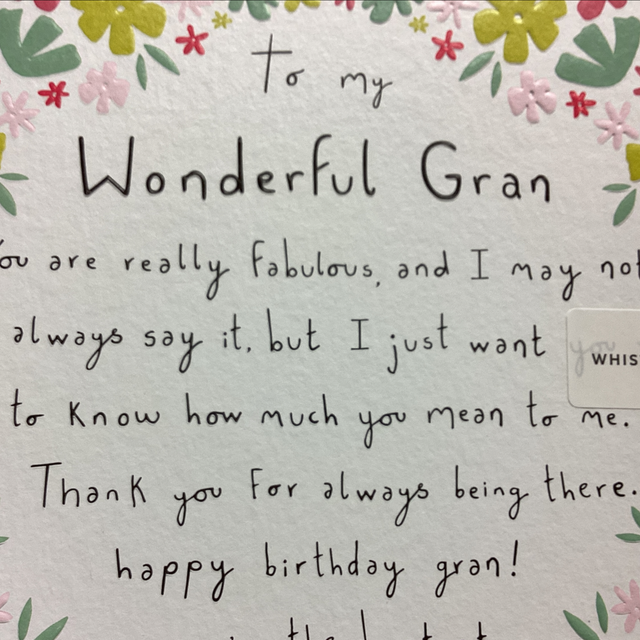 To my
Wonderful Gran
You are really fabulous, and I may not
always say it, but I just want you
WHIS
to know how much you mean to me.
Thank you for always being there.
happy birthday gran!